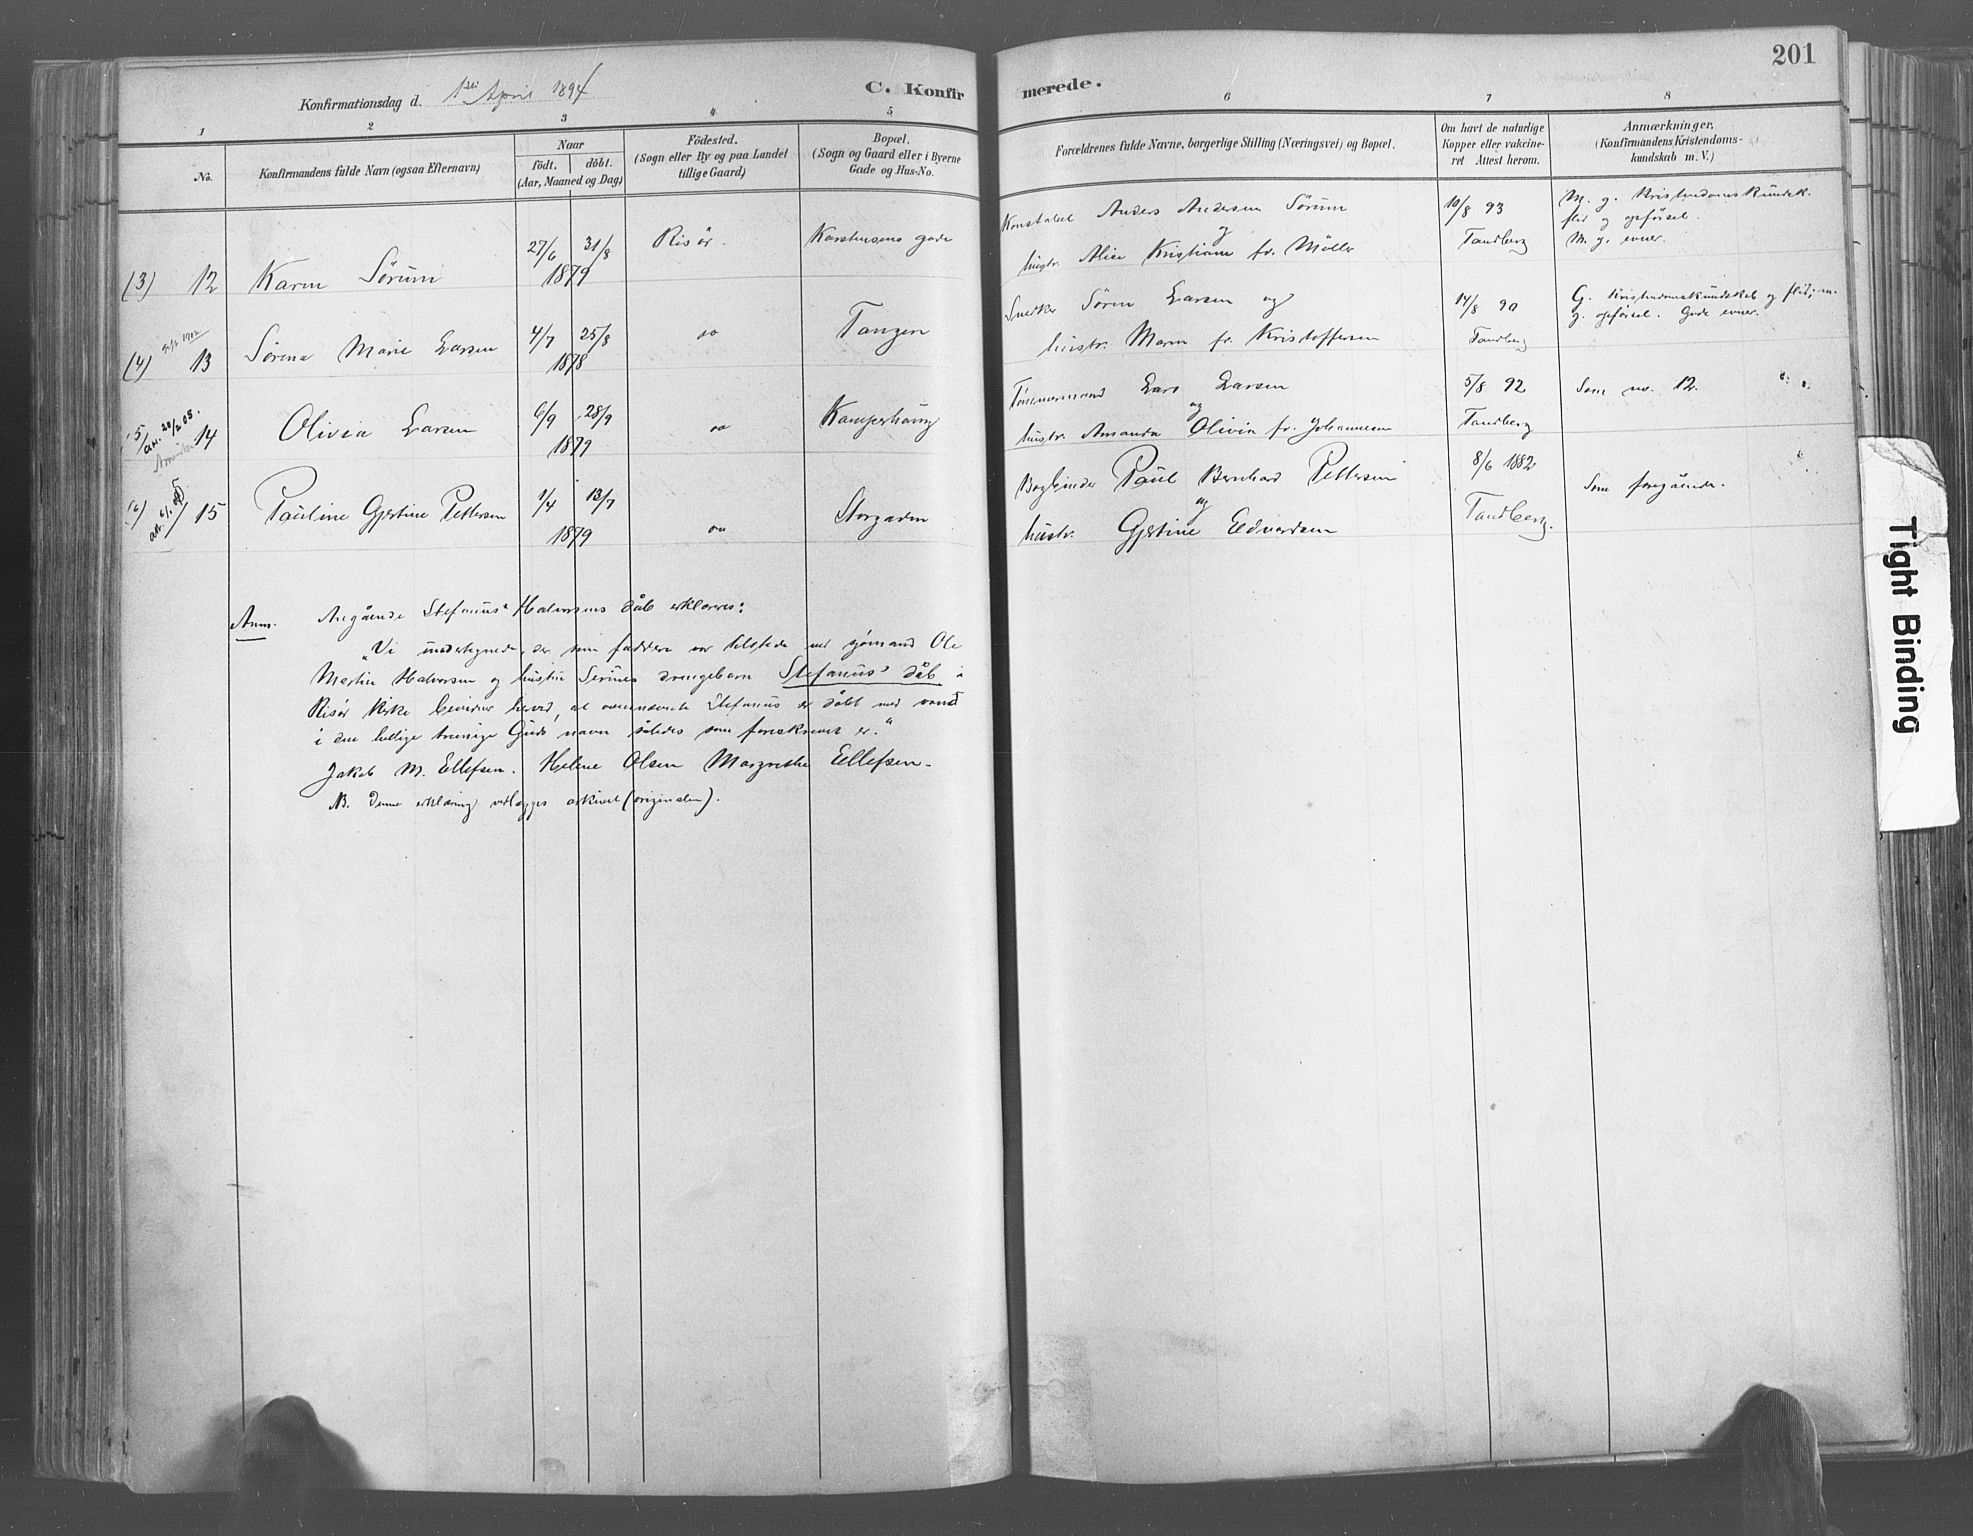 201
Konfirmationsdag d. 1ste April 1894
C. Konfirmerede.
1 2 3 4 5 6 7 8
No.
Konfirmandens fulde Navn (ogsaa Efternavn)
Naar
födt. döbt.
(Aar, Maaned og Dag)
Födested.
(Sogn eller By og paa Landet
tillige Gaard)
Bopæl.
(Sogn og Gaard eller i Byerne
Gade og Hus-No.
Forældrenes fulde Navne, borgerlige Stilling (Næringsvei) og Bopæl.
Om havt de naturlige
Kopper eller vakcine-
ret Attest herom.
Anmærkninger.
(Konfirmandens Kristendoms-
kundskab m. V.)
(3) 12 Karen Sørum
27/6 31/8
1879
Risör.
Karstensens gade
Konstabel Anders Andersen Sørum
og
hustr. Alice Kristiane fr. Möller
10/8 93
Tandberg
M. g. Kristendomskundsk.
flid og opförsel.
M. g. evner.
(4) 13 Sørine Marie Larsen
4/7 25/8
1878
Tangen
Snedker Sören Larsen og
hustr. Maren fr. Kristoffersen
14/8 90
Tandberg
G. Kristendomskundskab og flid; m.
g. opförsel. Gode evner.
14 Olivia Larsen
6/9 28/9
1879
Kamperhaug
Tömmermand Lars Larsen
og
hustr. Amanda Olivia fr. Johannesen
5/8 92
Tandberg
Som no. 12.
15 Pauline Gjertine Pettersen
1/4 13/7
1879
Storgaden
Bogbinder Paul Bernhard Pettersen
og
hustr. Gjertine Edvardsen
8/6 1882
Tandberg.
Som foregående.
Anm. Angående Stefanus Halvorsens dåb erklæres:
"Vi undertegnede, der som faddere var tilstede ved sjömand Ole
Martin Halvorsen og hustru Serines drengebarn Stefanus' dåb i
Risör kirke bevidner herved, at ovennævnte Stefanus er döbt med vand
i den hellige treenige Guds navn således som foreskrevet er."
Jakob M. Ellefsen. Helene Olsen Margrethe Ellefsen.
NB. Denne erklæring vedlægges arkivet (originalen).
Tight Binding